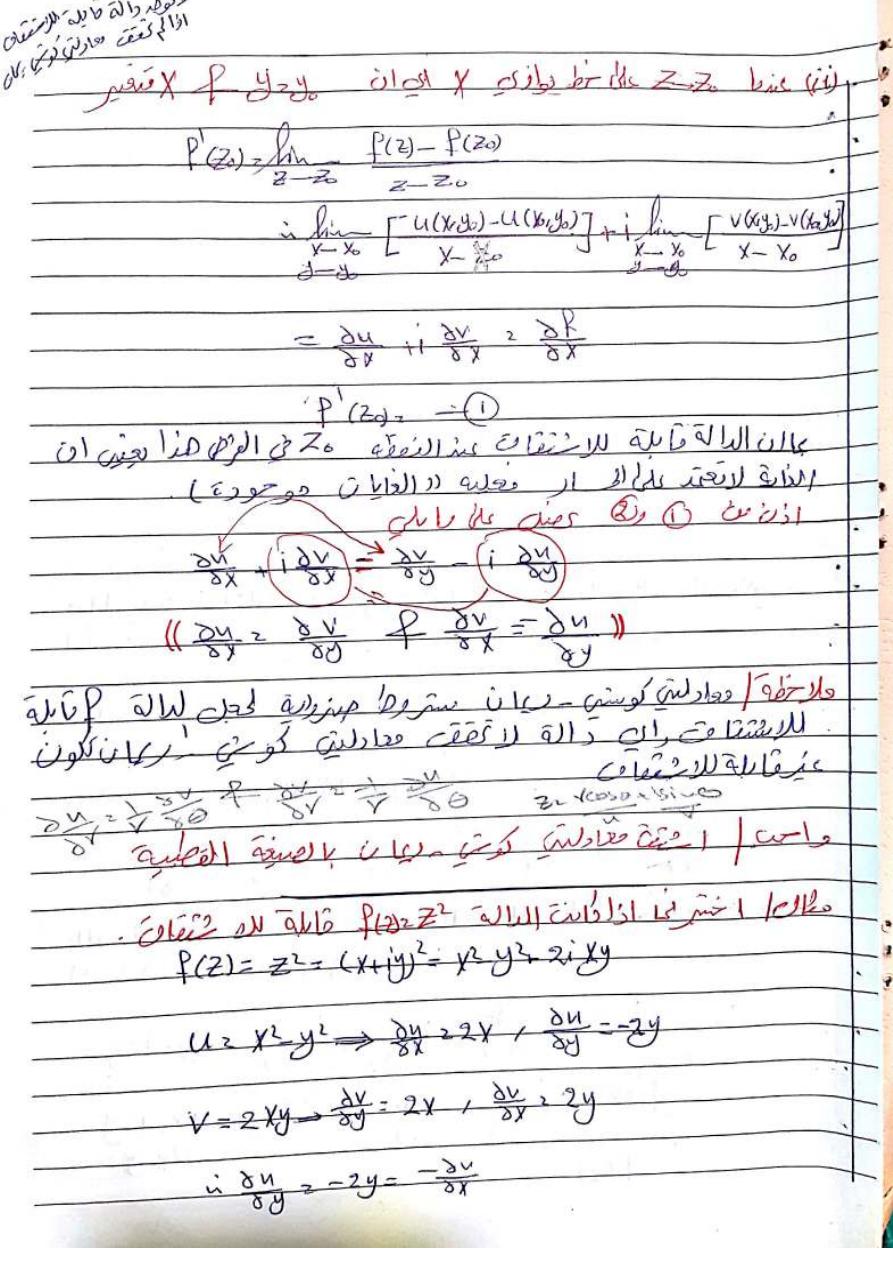 توجد دالة قابلة للاشتقاق
اذا لم تحقق معادلتي كوشي ريمان
(ii) عندما Z→Z₀ على خط يوازي X اي ان y=y₀ & X متغير
f'(Z₀) = lim_{Z→Z₀} (f(Z) - f(Z₀)) / (Z - Z₀)
∴ lim_{x→x₀, y→y₀} [(u(x,y₀) - u(x₀,y₀)) / (x - x₀)] + i lim_{x→x₀, y→y₀} [(v(x,y₀) - v(x₀,y₀)) / (x - x₀)]
= ∂u/∂x + i ∂v/∂x = ∂f/∂x
f'(Z₀) = —①
بما ان الدالة قابلة للاشتقاق عند النقطة Z₀ في الفرض هذا يعني ان
الغاية لا تعتمد على المسار فعليه ((الغايات موجودة).
اذن من ① و ② نحصل على ما يلي
∂u/∂x + i ∂v/∂x = ∂v/∂y - i ∂u/∂y
((∂u/∂x = ∂v/∂y & ∂v/∂x = -∂u/∂y))
ملاحظة/ معادلتي كوشي - ريمان شروط ضرورية لجعل لدالة f قابلة
للاشتقاق واي دالة لا تحقق معادلتي كوشي ريمان تكون
غير قابلة للاشتقاق
∂u/∂r = 1/r ∂v/∂θ & ∂v/∂r = 1/r ∂u/∂θ z = rcosθ + i sinθ
واجب/ اشتق معادلتي كوشي - ريمان بالصيغة القطبية
مثال/ اختبر فيما اذا كانت الدالة f(z)=Z² قابلة للاشتقاق.
f(Z) = Z² = (x+iy)² = x² - y² + 2ixy
u = x² - y² ⟹ ∂u/∂x = 2x , ∂u/∂y = -2y
v = 2xy → ∂v/∂y = 2x , ∂v/∂x = 2y
∴ ∂u/∂y = -2y = -∂v/∂x